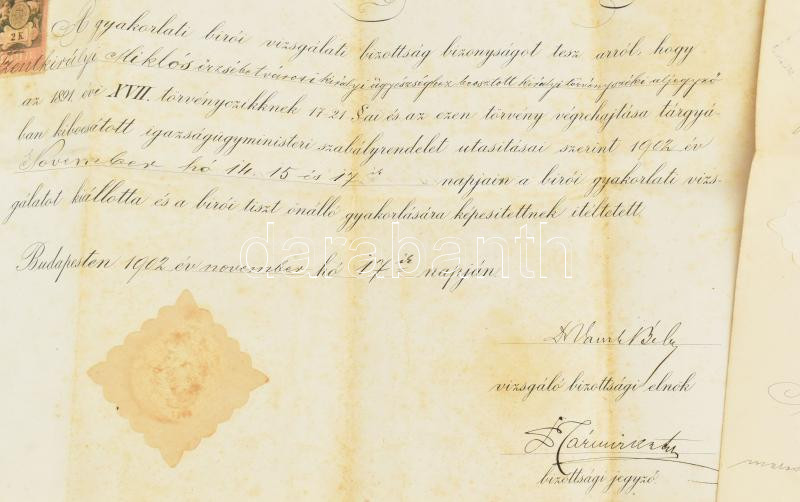 2 K
A gyakorlati birói vizsgálati bizottság bizonyságot tesz arról, hogy
Szentkirályi Miklós erzsébetvárosi királyi ügyészséghez beosztott királyi törvényszéki aljegyző
az 1891. évi XVII. törvényczikknek 17-21 §ai és az ezen törvény végrehajtása tárgyá-
ban kibocsátott igazságügyministeri szabályrendelet utasításai szerint 1902 év
November hó 14. 15 és 17 ik napjain a birói gyakorlati vizs-
gálatot kiállotta és a birói tiszt önálló gyakorlására képesitettnek itéltetett.
Budapesten 1902 év november hó 17 ik napján
darabanth
Béla
vizsgáló bizottsági elnök
bizottsági jegyző